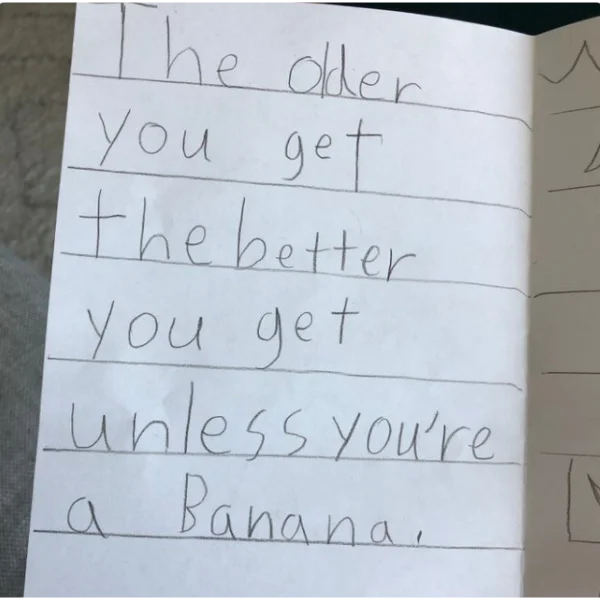 The older
you get
the better
you get
unless you're
a Banana.